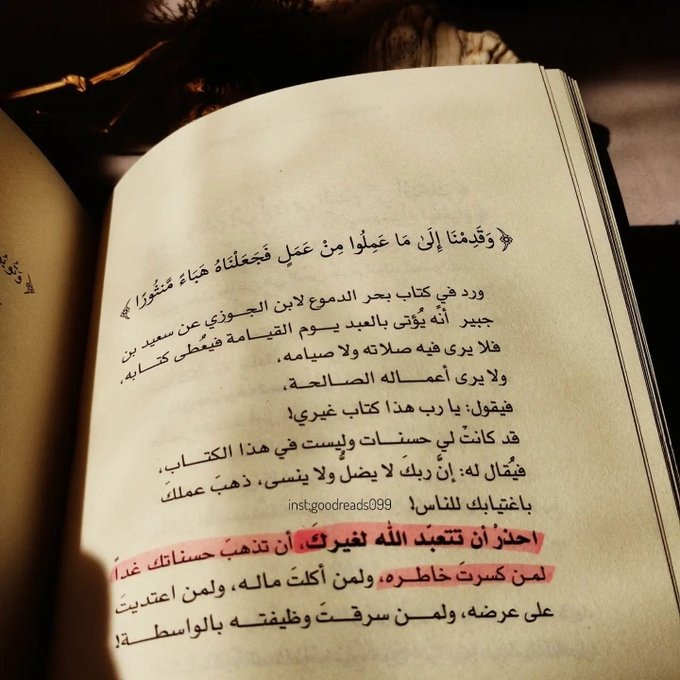 ﴿ وَقَدِمْنَا إِلَىٰ مَا عَمِلُوا مِنْ عَمَلٍ فَجَعَلْنَاهُ هَبَاءً مَّنثُورًا ﴾
ورد في كتاب بحر الدموع لابن الجوزي عن سعيد بن
جبير أنه يُؤتى بالعبد يوم القيامة فيعُطى كتابه،
فلا يرى فيه صلاته ولا صيامه،
ولا يرى أعماله الصالحة،
فيقول: يا رب هذا كتاب غيري!
قد كانتْ لي حسنات وليست في هذا الكتاب،
فيُقال له: إنَّ ربكَ لا يضلُّ ولا ينسى، ذهبَ عملكَ
باغتيابك للناس!
inst:goodreads099
احذرْ أن تتعبّد الله لغيركَ، أن تذهبَ حسناتك غداً
لمن كسرتَ خاطره، ولمن أكلتَ ماله، ولمن اعتديتَ
على عرضه، ولمن سرقتَ وظيفته بالواسطة!